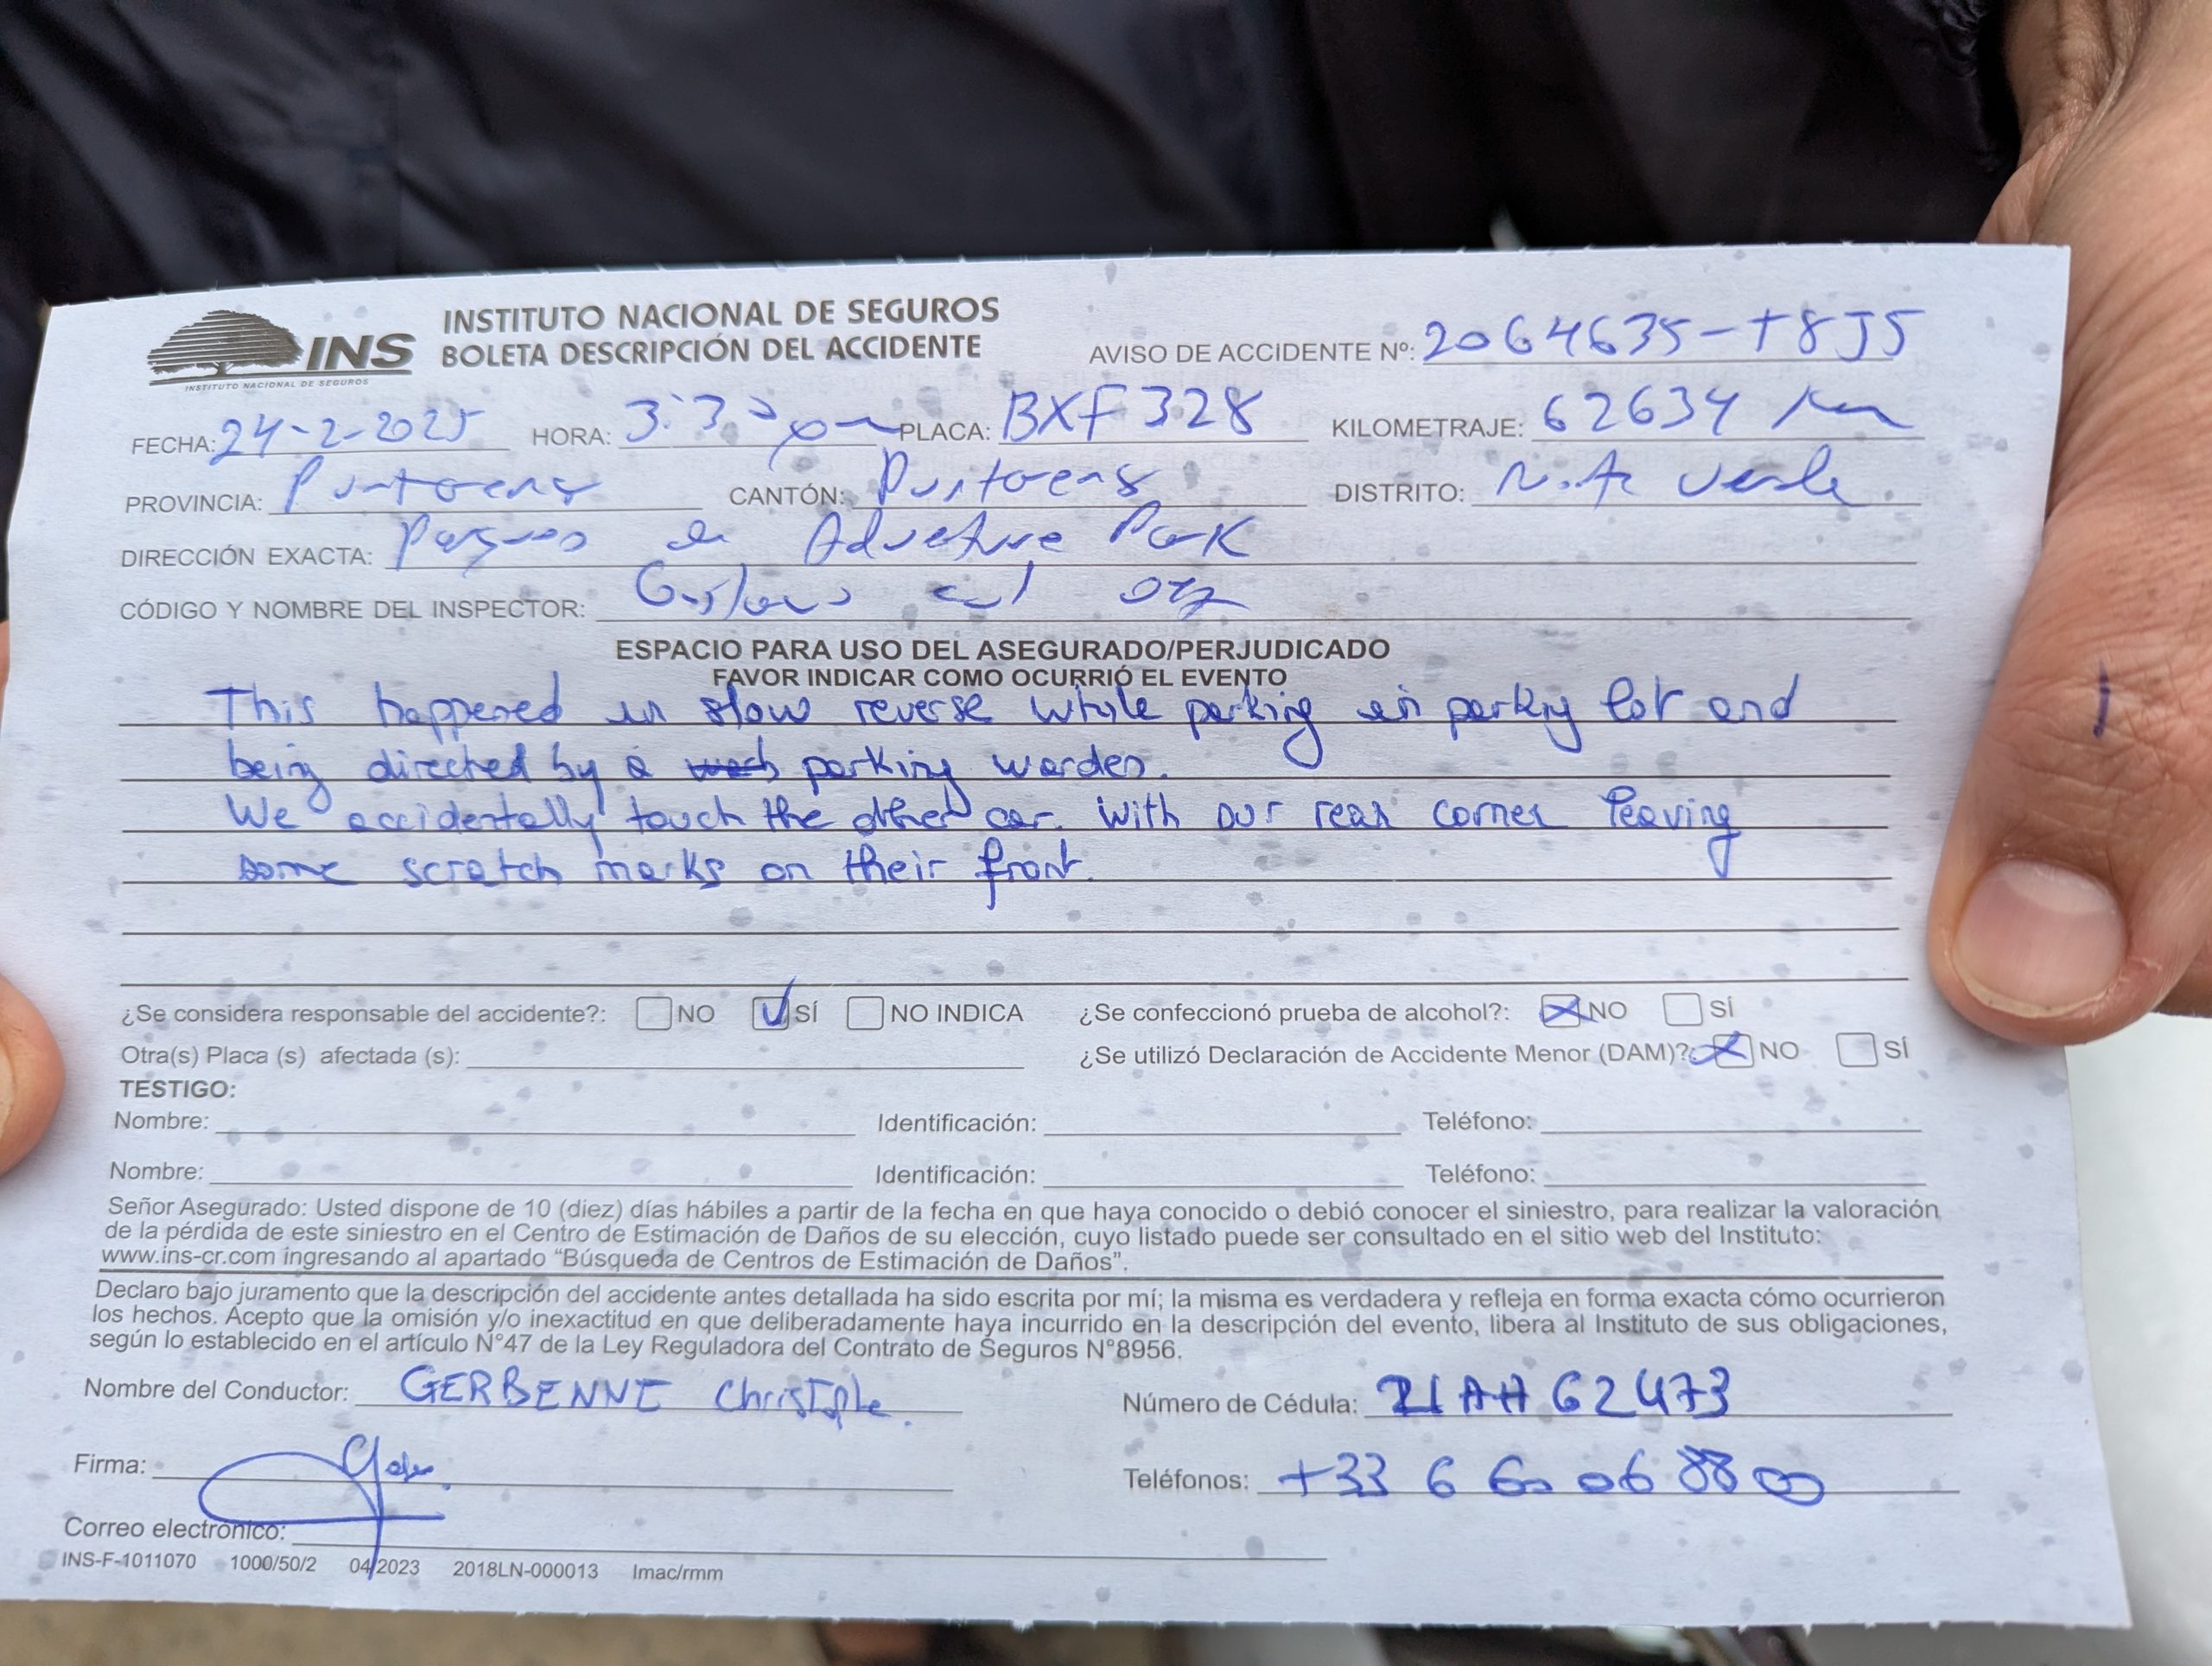 INS
INSTITUTO NACIONAL DE SEGUROS
INSTITUTO NACIONAL DE SEGUROS
BOLETA DESCRIPCIÓN DEL ACCIDENTE
AVISO DE ACCIDENTE Nº: 2064635-T8J5
FECHA: 24-2-2025 HORA: 3:30 pm PLACA: BXF328 KILOMETRAJE: 62634 Km
PROVINCIA: CANTÓN: DISTRITO:
DIRECCIÓN EXACTA: Park
CÓDIGO Y NOMBRE DEL INSPECTOR:
ESPACIO PARA USO DEL ASEGURADO/PERJUDICADO
FAVOR INDICAR COMO OCURRIÓ EL EVENTO
This happened in slow reverse while parking in parking lot and
being directed by a parking warden.
We accidentally touch the other car. With our rear corner leaving
some scratch marks on their front.
¿Se considera responsable del accidente?: NO SÍ NO INDICA ¿Se confeccionó prueba de alcohol?: NO SÍ
Otra(s) Placa (s) afectada (s): ¿Se utilizó Declaración de Accidente Menor (DAM)?: NO SÍ
TESTIGO:
Nombre: Identificación: Teléfono:
Nombre: Identificación: Teléfono:
Señor Asegurado: Usted dispone de 10 (diez) días hábiles a partir de la fecha en que haya conocido o debió conocer el siniestro, para realizar la valoración
de la pérdida de este siniestro en el Centro de Estimación de Daños de su elección, cuyo listado puede ser consultado en el sitio web del Instituto:
www.ins-cr.com ingresando al apartado “Búsqueda de Centros de Estimación de Daños”.
Declaro bajo juramento que la descripción del accidente antes detallada ha sido escrita por mí; la misma es verdadera y refleja en forma exacta cómo ocurrieron
los hechos. Acepto que la omisión y/o inexactitud en que deliberadamente haya incurrido en la descripción del evento, libera al Instituto de sus obligaciones,
según lo establecido en el artículo N°47 de la Ley Reguladora del Contrato de Seguros N°8956.
Nombre del Conductor: GERBENNE Número de Cédula: 21AH62473
Firma: Teléfonos: +33 6 60 06 88 00
Correo electrónico:
INS-F-1011070 1000/50/2 04/2023 2018LN-000013 lmac/rmm